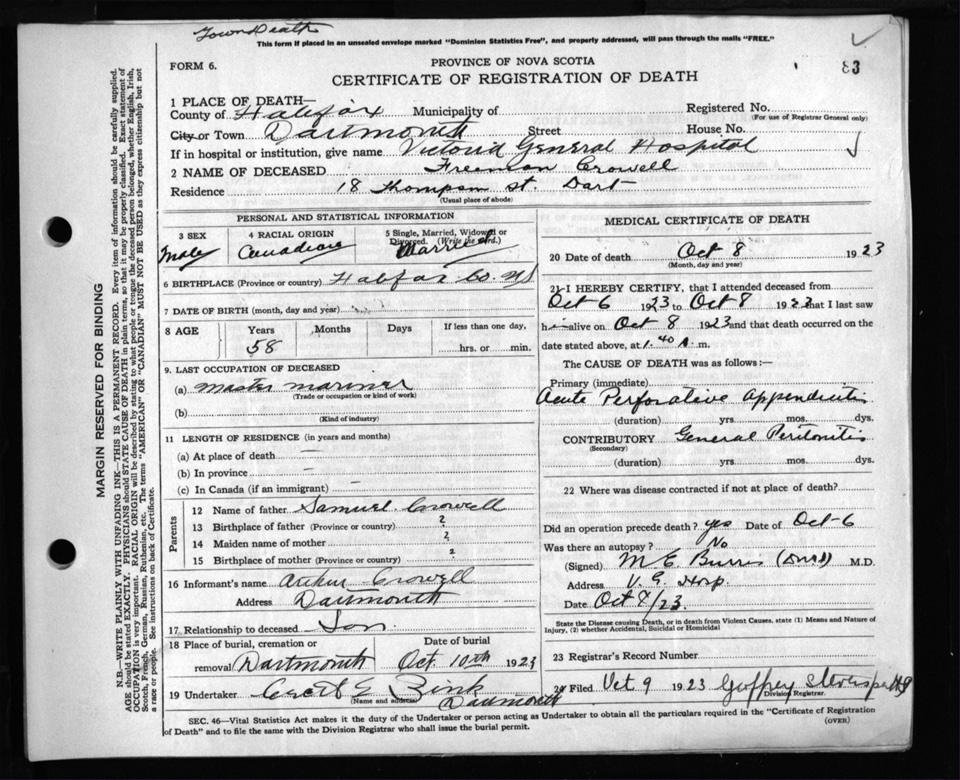 Town Death
This form if placed in an unsealed envelope marked "Dominion Statistics Free", and properly addressed, will pass through the mails "FREE."
83
FORM 6.
PROVINCE OF NOVA SCOTIA
CERTIFICATE OF REGISTRATION OF DEATH
1 PLACE OF DEATH—
County of Halifax Municipality of Registered No.
(For use of Registrar General only)
City or Town Dartmouth Street House No.
If in hospital or institution, give name Victoria General Hospital
2 NAME OF DECEASED Freeman Crowell
Residence 18 Thompson St. Dart
(Usual place of abode)
PERSONAL AND STATISTICAL INFORMATION
3 SEX
Male
4 RACIAL ORIGIN
Canadian
5 Single, Married, Widowed or Divorced. (Write the word.)
Married
6 BIRTHPLACE (Province or country) Halifax Co. NS
7 DATE OF BIRTH (month, day and year)
8 AGE Years Months Days If less than one day,
58 hrs. or min.
9. LAST OCCUPATION OF DECEASED
(a) Master mariner
(Trade or occupation or kind of work)
(b)
(Kind of industry)
11 LENGTH OF RESIDENCE (in years and months)
(a) At place of death —
(b) In province —
(c) In Canada (if an immigrant) —
Parents
12 Name of father Samuel Crowell
13 Birthplace of father (Province or country) ?
14 Maiden name of mother ?
15 Birthplace of mother (Province or Country) ?
16 Informant's name Arthur Crowell
Address Dartmouth
17 Relationship to deceased Son
18 Place of burial, cremation or removal Dartmouth Date of burial Oct. 10th 1923
19 Undertaker Zink
(Name and address) Dartmouth
MEDICAL CERTIFICATE OF DEATH
20 Date of death Oct 8 1923
(Month, day and year)
21 I HEREBY CERTIFY, that I attended deceased from
Oct 6 1923 to Oct 8 1923 that I last saw
him alive on Oct 8 1923 and that death occurred on
date stated above, at 1.40 A. m.
The CAUSE OF DEATH was as follows:—
Primary (immediate)
Acute Perforative Appendicitis
(duration) yrs. mos. dys.
CONTRIBUTORY General Peritonitis
(Secondary)
(duration) yrs. mos. dys.
22 Where was disease contracted if not at place of death?
Did an operation precede death? yes Date of Oct-6
Was there an autopsy? No
(Signed) M. E. Burris M.D.
Address V. G. Hosp.
Date Oct 8/23.
State the Disease causing Death, or in death from Violent Causes, state (1) Means and Nature of Injury, (2) whether Accidental, Suicidal or Homicidal
23 Registrar's Record Number
24 Filed Oct 9 1923 Geoffrey
Division Registrar.
SEC. 46—Vital Statistics Act makes it the duty of the Undertaker or person acting as Undertaker to obtain all the particulars required in the "Certificate of Registration of Death" and to file the same with the Division Registrar who shall issue the burial permit.
(OVER)
MARGIN RESERVED FOR BINDING
N.B.—WRITE PLAINLY WITH UNFADING INK—THIS IS A PERMANENT RECORD. Every item of information should be carefully supplied.
AGE should be stated EXACTLY. PHYSICIANS should STATE CAUSE OF DEATH in plain terms, so that it may be properly classified. Exact statement of
OCCUPATION is very important. RACIAL ORIGIN will be described by stating to what people or tongue the deceased person belonged, whether English, Irish,
Scotch, French, German, Russian, Ruthenian, etc. The terms "AMERICAN" OR "CANADIAN" MUST NOT BE USED as they express citizenship but not
a race or people. See instructions on back of Certificate.